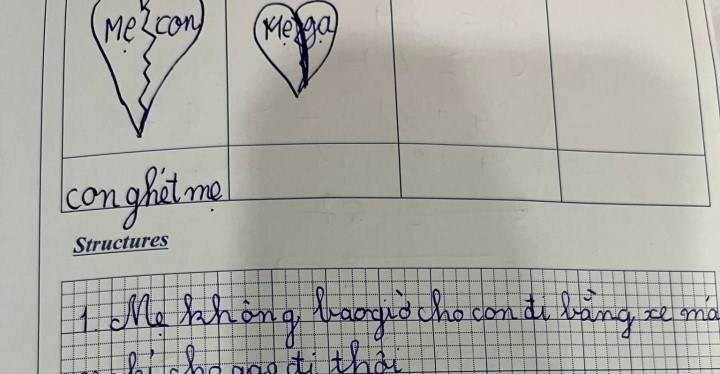 Mẹ con
Mẹ ga
con ghét mẹ
Structures
1. Mẹ không bao giờ cho con đi bằng xe mà
chỉ cho gao đi thôi